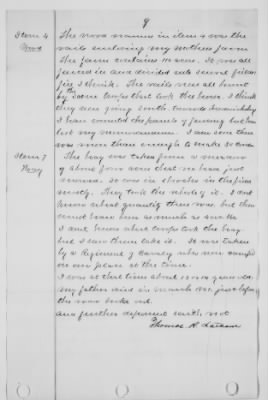 9
Item 4
Wood
The wood named in item 4 was the
rails enclosing my mothers farm
The farm contains 111 acres. It was all
fenced in and divided into several fields
five I think. The rails were all burnt
by the same troops that took the horses. I think
they were going south towards
I have counted the panels of fencing but have
lost my memorandum. I am sure there
was more than enough to make 30 cords
Item 7
Hay
The hay was taken from a meadow
of about four acres that we have just
mowed. It was in shocks in the field
mostly. They took the whole of it. I dont
know what quantity there was. but there
could have been as much as
I dont know what troops took the hay.
but I saw them take it. It was taken
by a Regiment of Cavalry who were camped
on our place at the time.
I was at that time about years old.
my father died in March 1861. just before
the war broke out.
And further deponent saith not
Thomas R.